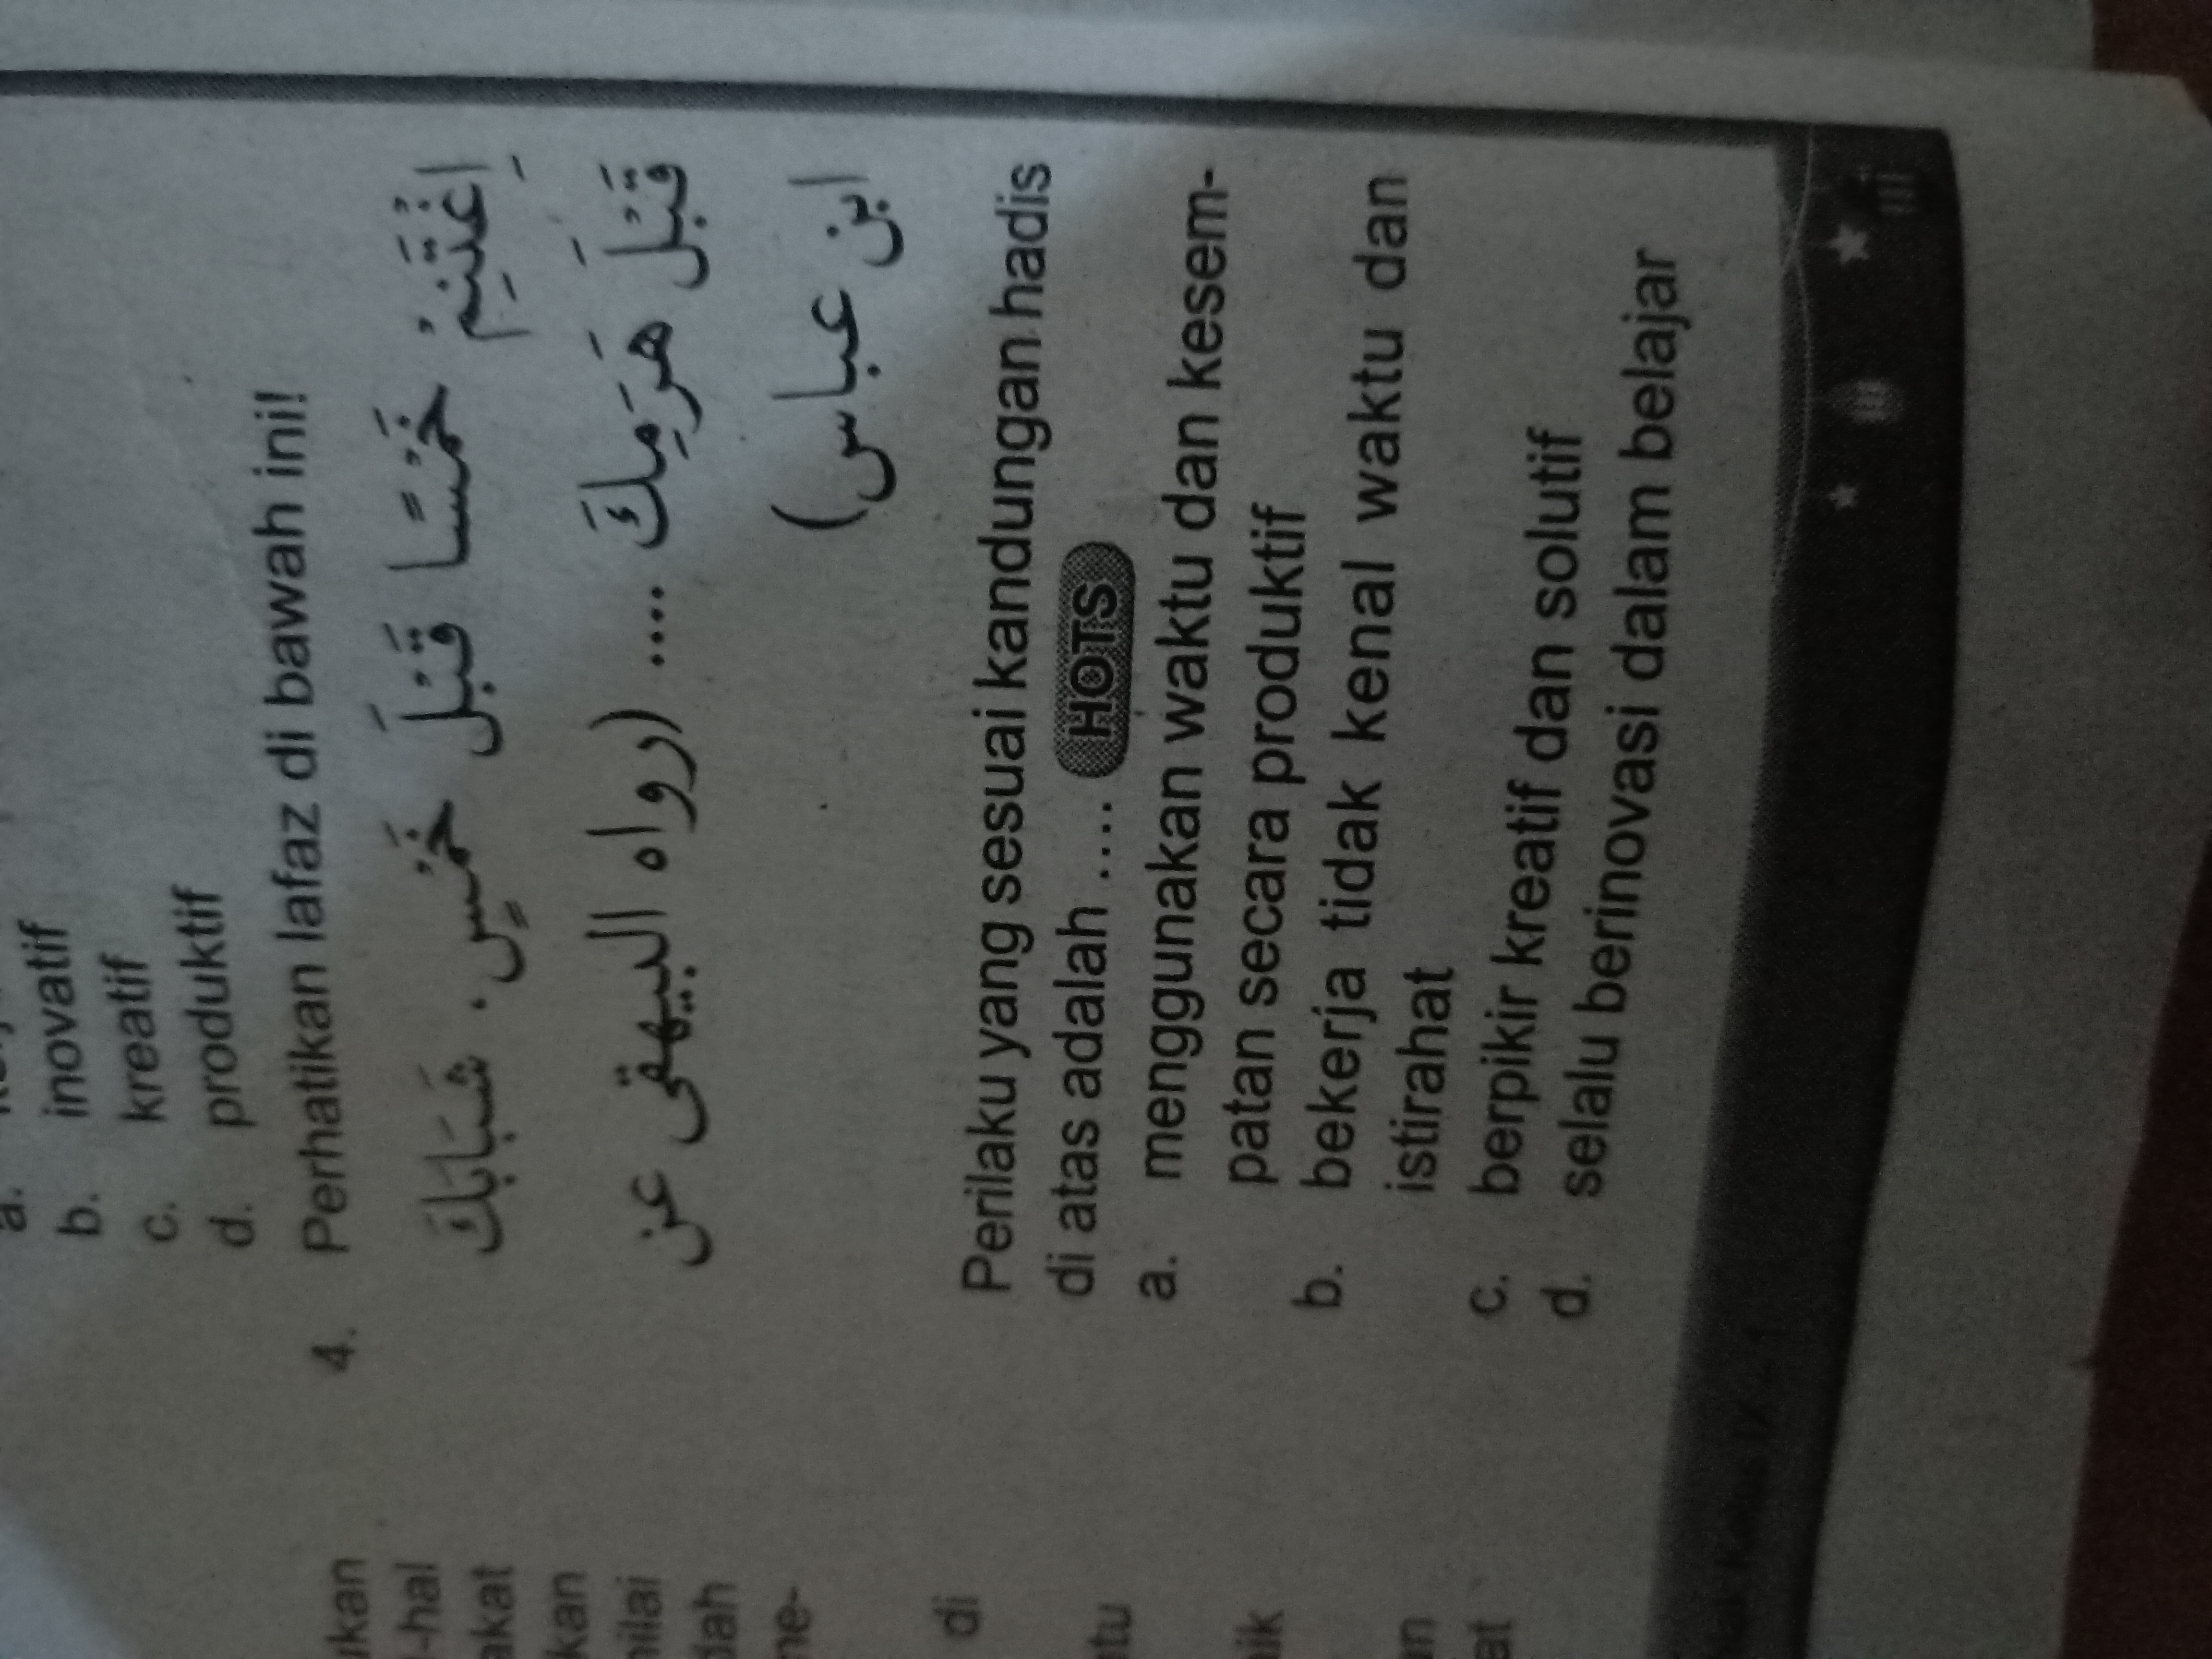 a.
b. inovatif
c. kreatif
d. produktif
4. Perhatikan lafaz di bawah ini!
اِغْتَنِمْ خَمْسًا قَبْلَ خَمْسٍ. شَبَابَكَ
قَبْلَ هَرَمِكَ .... (رواه البيهقى عن
ابن عباس)
Perilaku yang sesuai kandungan hadis
di atas adalah .... HOTS
a. menggunakan waktu dan kesem-
patan secara produktif
b. bekerja tidak kenal waktu dan
istirahat
c. berpikir kreatif dan solutif
d. selalu berinovasi dalam belajar
ukan
-hal
akat
kan
nilai
dah
ne-
di